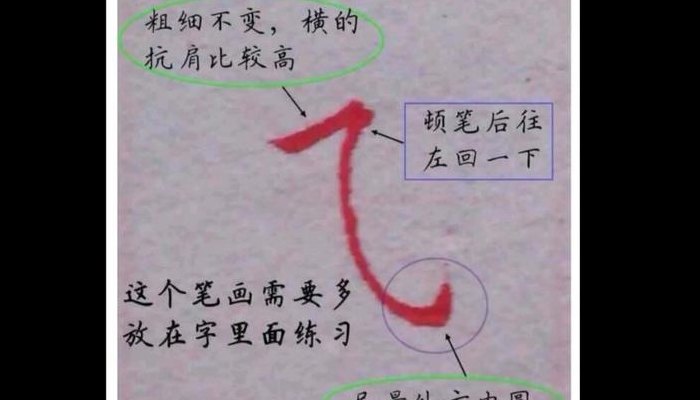 粗细不变，横的
抗肩比较高
顿笔后往
左回一下
这个笔画需要多
放在字里面练习